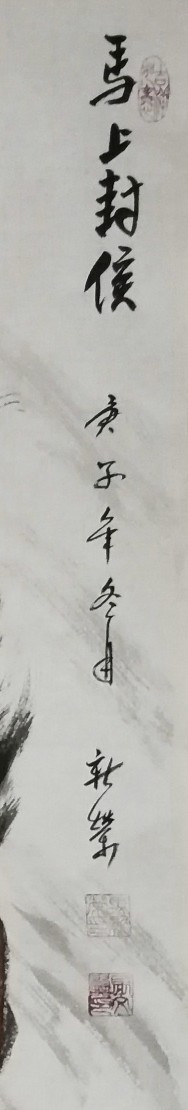 馬上封侯
庚子年冬月
新榮